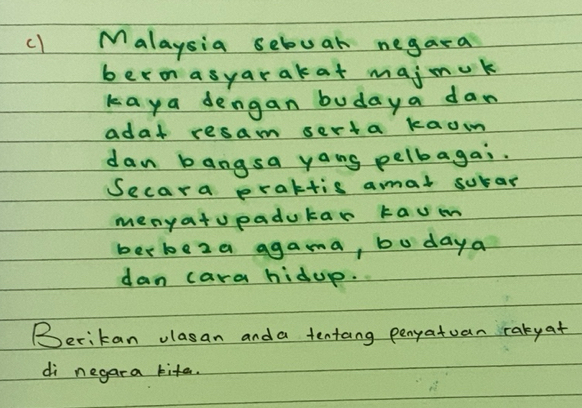 c) Malaysia sebuah negara
bermasyarakat majmuk
kaya dengan budaya dan
adat resam serta kaum
dan bangsa yang pelbagai.
Secara praktis amat sukar
menyatupadukan kaum
berbeza agama, budaya
dan cara hidup.
Berikan ulasan anda tentang penyatuan rakyat
di negara kita.